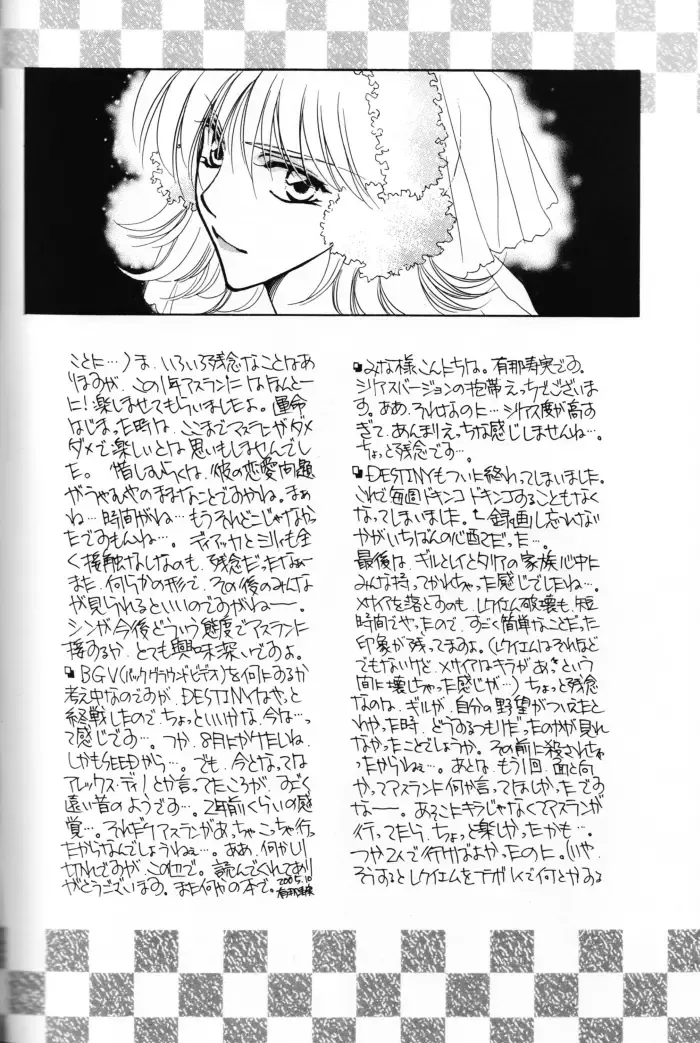 ■みな様こんにちは。有那寿実です。
シリアスバージョンの携帯えっちでございま
す。ああ、それなのに…シリアス度が高す
ぎて、あんまりえっちな感じしませんね…。
ちょっと残念です…。
■DESTINYもついに終わってしまいました。
これで毎週ドキンコドキンコすることもなく
なってしまいました。←録画し忘れない
かがいちばんの心配でだった…。
最後は、ギルとレイとタリアの家族心中に
みんながつかれちゃった感じでしたね…。
メサイアを落とすのも、レクイエム破壊も、短
時間でやったので、すごく簡単なことだった
印象が残ってますよ。(レクイエムはそれほど
でもないけど、メサイアはキラがあっという
間に壊しちゃった感じが…)ちょっと残念
なのは、ギルが、自分の野望がついえたと
わかった時、どうするつもりだったのかが見れ
なかったことでしょうか。その前に殺されちゃ
ったからねぇ…。あとは、もう1回、面と向
かってアスランに何か言ってほしかったです
なー。あそこにキラじゃなくてアスランが
行ってたら、ちょっと楽しかったかも…。
つか2人で行けばよかったのに。(いや、
そうするとレクイエムをゴールドで何とかする
ことに…)ま、いろいろ残念なことはあ
りますが、この1年アスランにはほんとー
に!楽しませてもらいましたよ。運命
はじまった時は、ここまでアスランがダメ
ダメで楽しいとは思いもしませんでし
た。惜しむらくは、彼の恋愛問題
がうやむやのままなことですかね。まぁ
ね…時間がね…もうそれどこじゃなかっ
たですもんね…。ディアッカとミリィも全
く接触なしなのも、残念だったなぁー
また、何らかの形で、その後のみんな
が見られるといいのですがねー。
シンが今後どういう態度でアスランに
接するか、とても興味深いですよ。
■BGV(バックグラウンドビデオ)を何にするか
考え中なのですが、DESTINYはやっと
終戦したのでちょっといいかな、今は…っ
て感じです…。つか、8月にかけたしね、
しかもSEEDから…。でも、今となっては
アレックス・ディノとか言ってたころが、すごく
遠い昔のようです…。2年前くらいの感
覚…。それだけアスランがあっちゃこっちゃ行っ
たからなんでしょうねぇ…。ああ、何か尻
切れですが、この辺で。読んでくれてあり
がとうございます。また何かの本で。2005.10
有那寿実